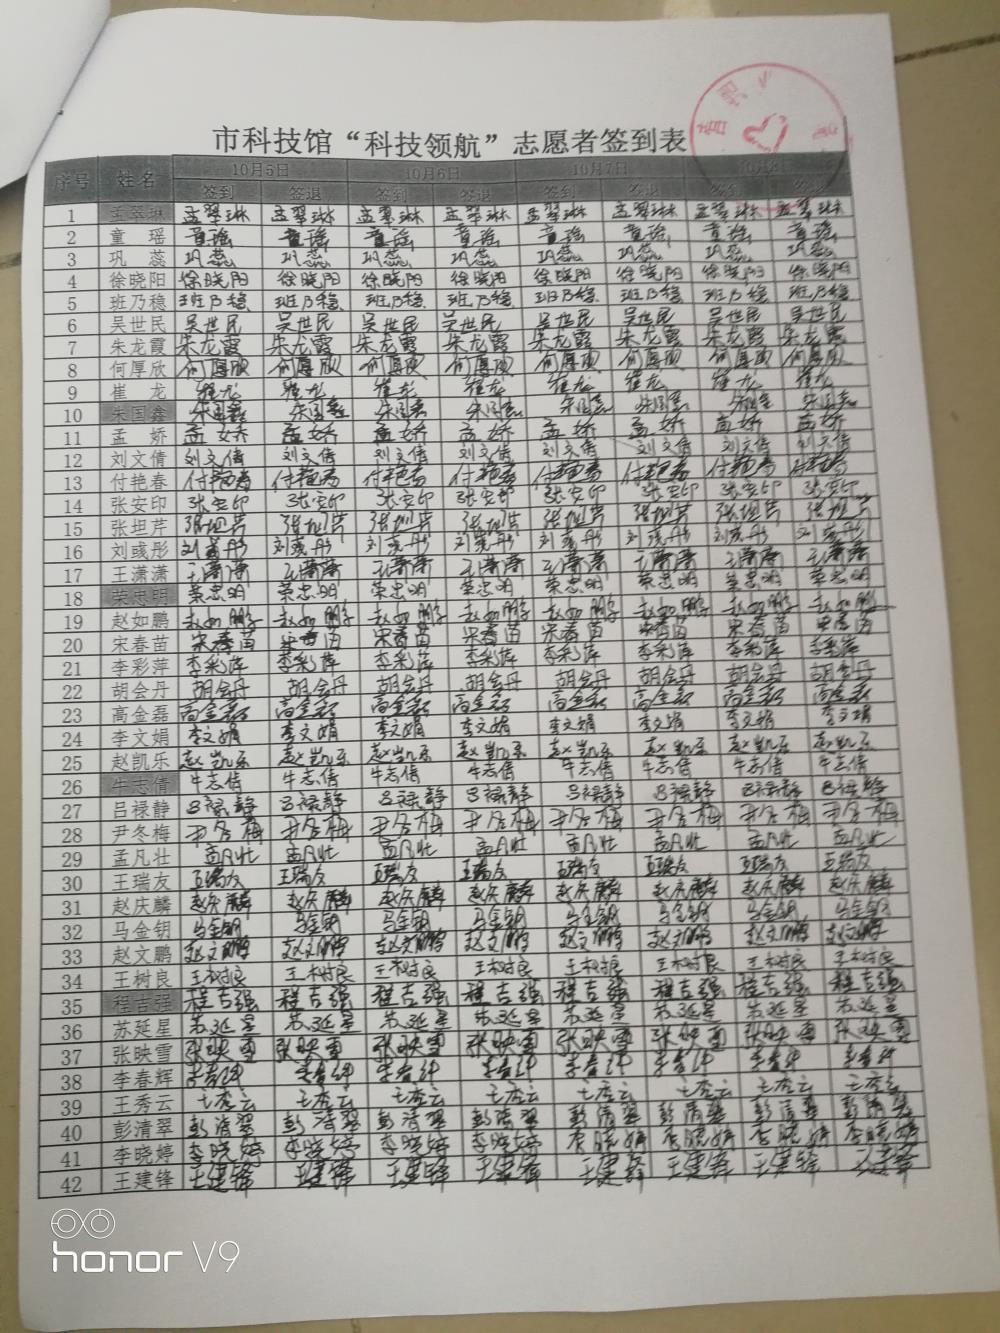 市科技馆“科技领航”志愿者签到表
序号 姓名 10月5日 10月6日 10月7日 10月8日
签到 签退 签到 签退 签到 签退 签到 签退
1 孟翠琳 孟翠琳 孟翠琳 孟翠琳 孟翠琳 孟翠琳 孟翠琳 孟翠琳 孟翠琳
2 童瑶 童瑶 童瑶 童瑶 童瑶 童瑶 童瑶 童瑶 童瑶
3 巩蕊 巩蕊 巩蕊 巩蕊 巩蕊 巩蕊 巩蕊 巩蕊 巩蕊
4 徐晓阳 徐晓阳 徐晓阳 徐晓阳 徐晓阳 徐晓阳 徐晓阳 徐晓阳 徐晓阳
5 班乃稳 班乃稳 班乃稳 班乃稳 班乃稳 班乃稳 班乃稳 班乃稳 班乃稳
6 吴世民 吴世民 吴世民 吴世民 吴世民 吴世民 吴世民 吴世民 吴世民
7 朱龙霞 朱龙霞 朱龙霞 朱龙霞 朱龙霞 朱龙霞 朱龙霞 朱龙霞 朱龙霞
8 何厚欣 何厚欣 何厚欣 何厚欣 何厚欣 何厚欣 何厚欣 何厚欣 何厚欣
9 崔龙 崔龙 崔龙 崔龙 崔龙 崔龙 崔龙 崔龙 崔龙
10 朱国鑫 朱国鑫 朱国鑫 朱国鑫 朱国鑫 朱国鑫 朱国鑫 朱国鑫 朱国鑫
11 孟娇 孟娇 孟娇 孟娇 孟娇 孟娇 孟娇 孟娇 孟娇
12 刘文倩 刘文倩 刘文倩 刘文倩 刘文倩 刘文倩 刘文倩 刘文倩 刘文倩
13 付艳春 付艳春 付艳春 付艳春 付艳春 付艳春 付艳春 付艳春 付艳春
14 张安印 张安印 张安印 张安印 张安印 张安印 张安印 张安印 张安印
15 张坦芹 张坦芹 张坦芹 张坦芹 张坦芹 张坦芹 张坦芹 张坦芹 张坦芹
16 刘彧彤 刘彧彤 刘彧彤 刘彧彤 刘彧彤 刘彧彤 刘彧彤 刘彧彤 刘彧彤
17 王潇潇 王潇潇 王潇潇 王潇潇 王潇潇 王潇潇 王潇潇 王潇潇 王潇潇
18 荣忠明 荣忠明 荣忠明 荣忠明 荣忠明 荣忠明 荣忠明 荣忠明 荣忠明
19 赵如鹏 赵如鹏 赵如鹏 赵如鹏 赵如鹏 赵如鹏 赵如鹏 赵如鹏 赵如鹏
20 宋春苗 宋春苗 宋春苗 宋春苗 宋春苗 宋春苗 宋春苗 宋春苗 宋春苗
21 李彩萍 李彩萍 李彩萍 李彩萍 李彩萍 李彩萍 李彩萍 李彩萍 李彩萍
22 胡会丹 胡会丹 胡会丹 胡会丹 胡会丹 胡会丹 胡会丹 胡会丹 胡会丹
23 高金磊 高金磊 高金磊 高金磊 高金磊 高金磊 高金磊 高金磊 高金磊
24 李文娟 李文娟 李文娟 李文娟 李文娟 李文娟 李文娟 李文娟 李文娟
25 赵凯乐 赵凯乐 赵凯乐 赵凯乐 赵凯乐 赵凯乐 赵凯乐 赵凯乐 赵凯乐
26 牛志倩 牛志倩 牛志倩 牛志倩 牛志倩 牛志倩 牛志倩 牛志倩 牛志倩
27 吕禄静 吕禄静 吕禄静 吕禄静 吕禄静 吕禄静 吕禄静 吕禄静 吕禄静
28 尹冬梅 尹冬梅 尹冬梅 尹冬梅 尹冬梅 尹冬梅 尹冬梅 尹冬梅 尹冬梅
29 孟凡壮 孟凡壮 孟凡壮 孟凡壮 孟凡壮 孟凡壮 孟凡壮 孟凡壮 孟凡壮
30 王瑞友 王瑞友 王瑞友 王瑞友 王瑞友 王瑞友 王瑞友 王瑞友 王瑞友
31 赵庆麟 赵庆麟 赵庆麟 赵庆麟 赵庆麟 赵庆麟 赵庆麟 赵庆麟 赵庆麟
32 马金钥 马金钥 马金钥 马金钥 马金钥 马金钥 马金钥 马金钥 马金钥
33 赵文鹏 赵文鹏 赵文鹏 赵文鹏 赵文鹏 赵文鹏 赵文鹏 赵文鹏 赵文鹏
34 王树良 王树良 王树良 王树良 王树良 王树良 王树良 王树良 王树良
35 程吉强 程吉强 程吉强 程吉强 程吉强 程吉强 程吉强 程吉强 程吉强
36 苏延星 苏延星 苏延星 苏延星 苏延星 苏延星 苏延星 苏延星 苏延星
37 张映雪 张映雪 张映雪 张映雪 张映雪 张映雪 张映雪 张映雪 张映雪
38 李春辉 李春辉 李春辉 李春辉 李春辉 李春辉 李春辉 李春辉 李春辉
39 王秀云 王秀云 王秀云 王秀云 王秀云 王秀云 王秀云 王秀云 王秀云
40 彭清翠 彭清翠 彭清翠 彭清翠 彭清翠 彭清翠 彭清翠 彭清翠 彭清翠
41 李晓婷 李晓婷 李晓婷 李晓婷 李晓婷 李晓婷 李晓婷 李晓婷 李晓婷
42 王建锋 王建锋 王建锋 王建锋 王建锋 王建锋 王建锋 王建锋 王建锋
honor V9